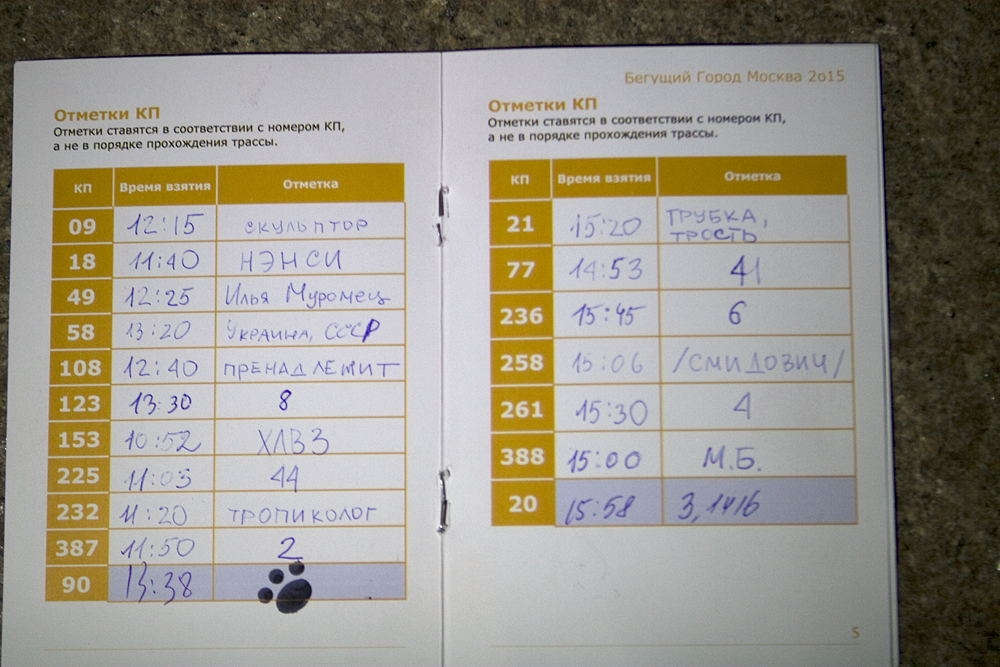 Отметки КП
Отметки ставятся в соответствии с номером КП,
а не в порядке прохождения трассы.
КП Время взятия Отметка
09 12:15 скульптор
18 11:40 НЭНСИ
49 12:25 Илья Муромец
58 13:20 Украина, СССР
108 12:40 ПРЕНАДЛЕЖИТ
123 13:30 8
153 10:52 ХЛВЗ
225 11:03 44
232 11:20 ТРОПИКОЛОГ
387 11:50 2
90 13:38
Бегущий Город Москва 2015
Отметки КП
Отметки ставятся в соответствии с номером КП,
а не в порядке прохождения трассы.
КП Время взятия Отметка
21 15:20 ТРУБКА,
ТРОСТЬ
77 14:53 41
236 15:45 6
258 15:06 /СМИДОВИЧ/
261 15:30 4
388 15:00 М.Б.
20 15:58 3,1416
5